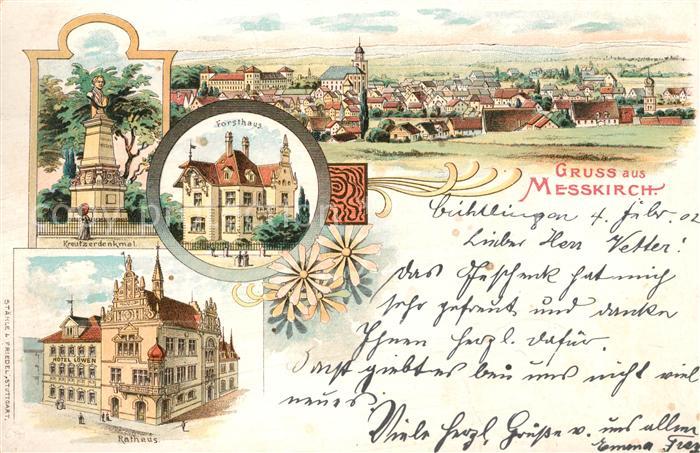 Forsthaus.
Kreutzerdenkmal.
GRUSS aus
MESSKIRCH.
Bichtlingen 4. Febr. 02
Lieber Herr Vetter!
Das Geschenk hat mich
sehr gefreut und danke
Ihnen herzl. dafür.
Sonst giebt es bei uns nicht viel
neues.
Viele herzl. Grüße v. uns allen
Emma
HOTEL LÖWEN
Rathaus.
STÄHLE & FRIEDEL, STUTTGART.